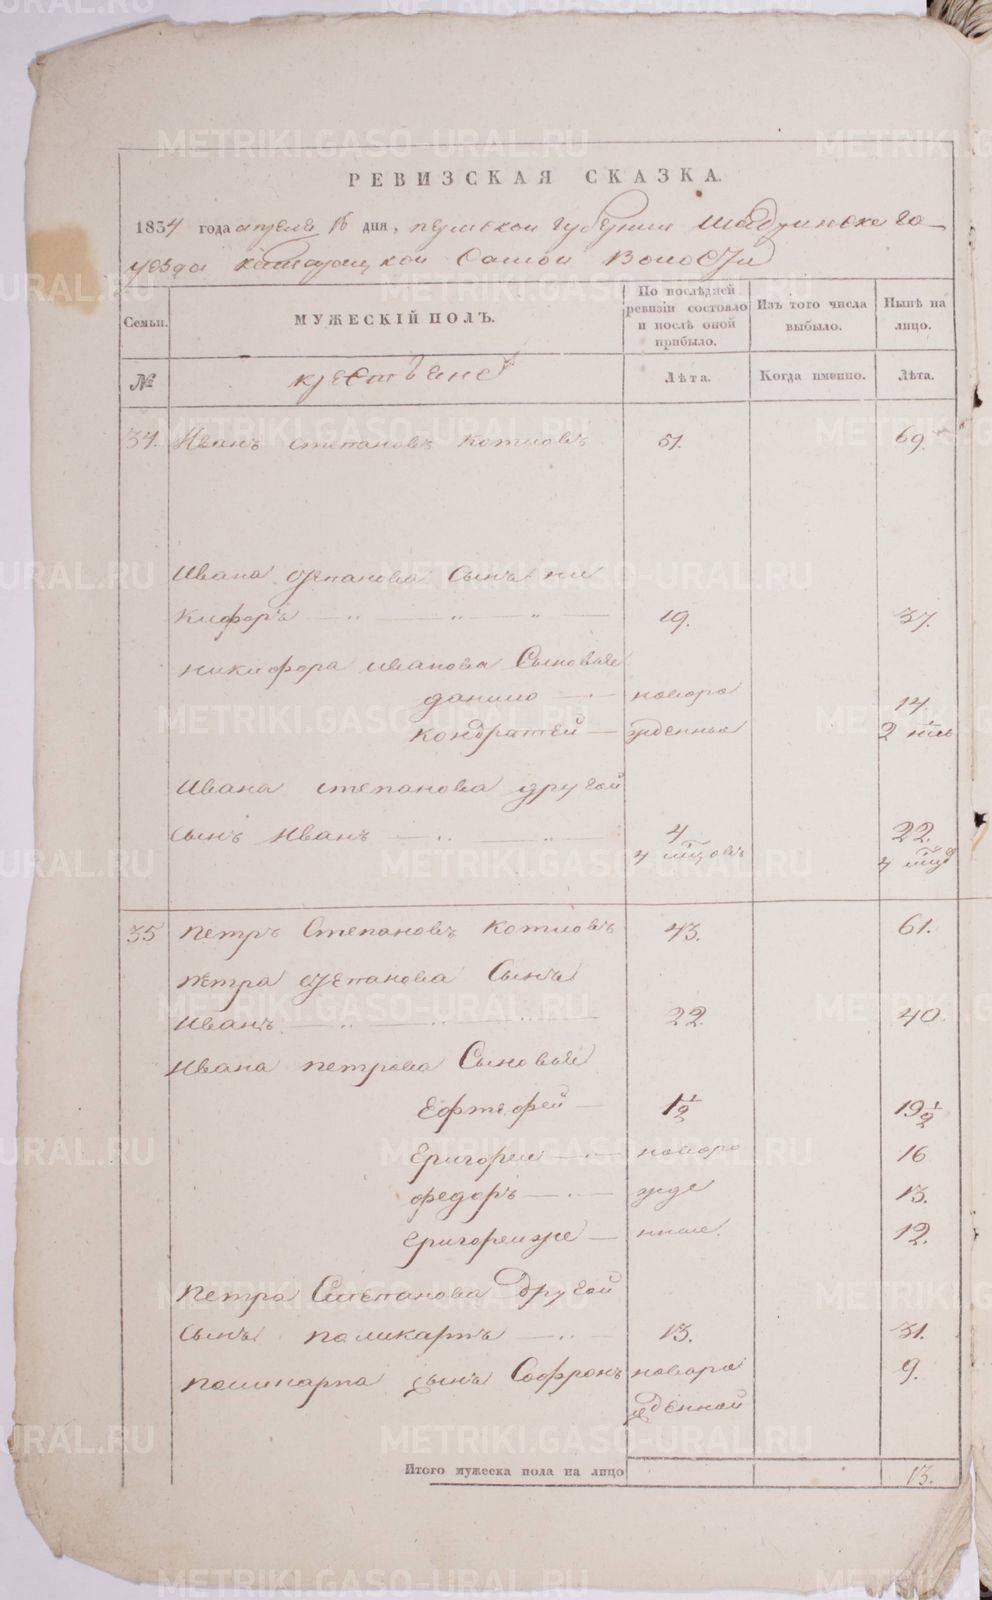 РЕВИЗСКАЯ СКАЗКА.
1834 года апреля 16 дня, пермской губернии Шадринскаго
уезда Самой Волости
Семьи. МУЖЕСКІЙ ПОЛЪ. По послѣдней ревизіи состояло и послѣ оной прибыло. Изъ того числа выбыло. Нынѣ на лицо.
№ крестьяне Лѣта. Когда именно. Лѣта.
34. Иванъ степановъ котловъ 51. 69.
Ивана степанова Сынъ ни
кифоръ 19. 37.
никифора иванова Сыновья
данило новоро 14.
кондратей жденные 2 нѣд
Ивана степанова другой
сынъ Иванъ 4 22.
4 мцовъ 4 мцо
35 петръ Степановъ котловъ 43. 61.
петра степанова Сынъ
Иванъ 22. 40.
Ивана петрова Сыновья
1½ 19½
Григореи новоро 16
федоръ жде 13.
Григореиже нные. 12.
петра Степанова Другой
сынъ поликарпъ 13. 31.
поликарпа сынъ Софронъ новоро 9.
жденной
Итого мужеска пола на лицо 13.
METRIKI.GASO-URAL.RU